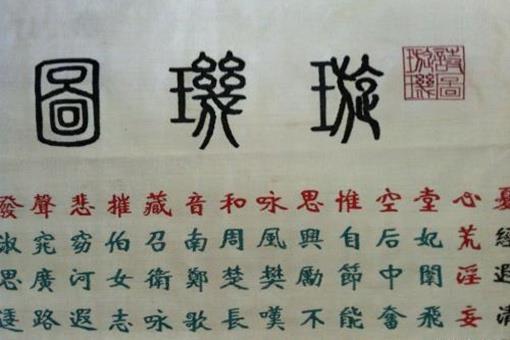 璇璣圖
詩圖
璇璣
憂心堂空惟思咏和音藏摧悲聲發
經荒妃后自興風周南召伯窈窕淑
遐淫闈中節勵樊楚鄭衛女河廣思
清妄飛奮能不嘆長歌咏志遐路逶